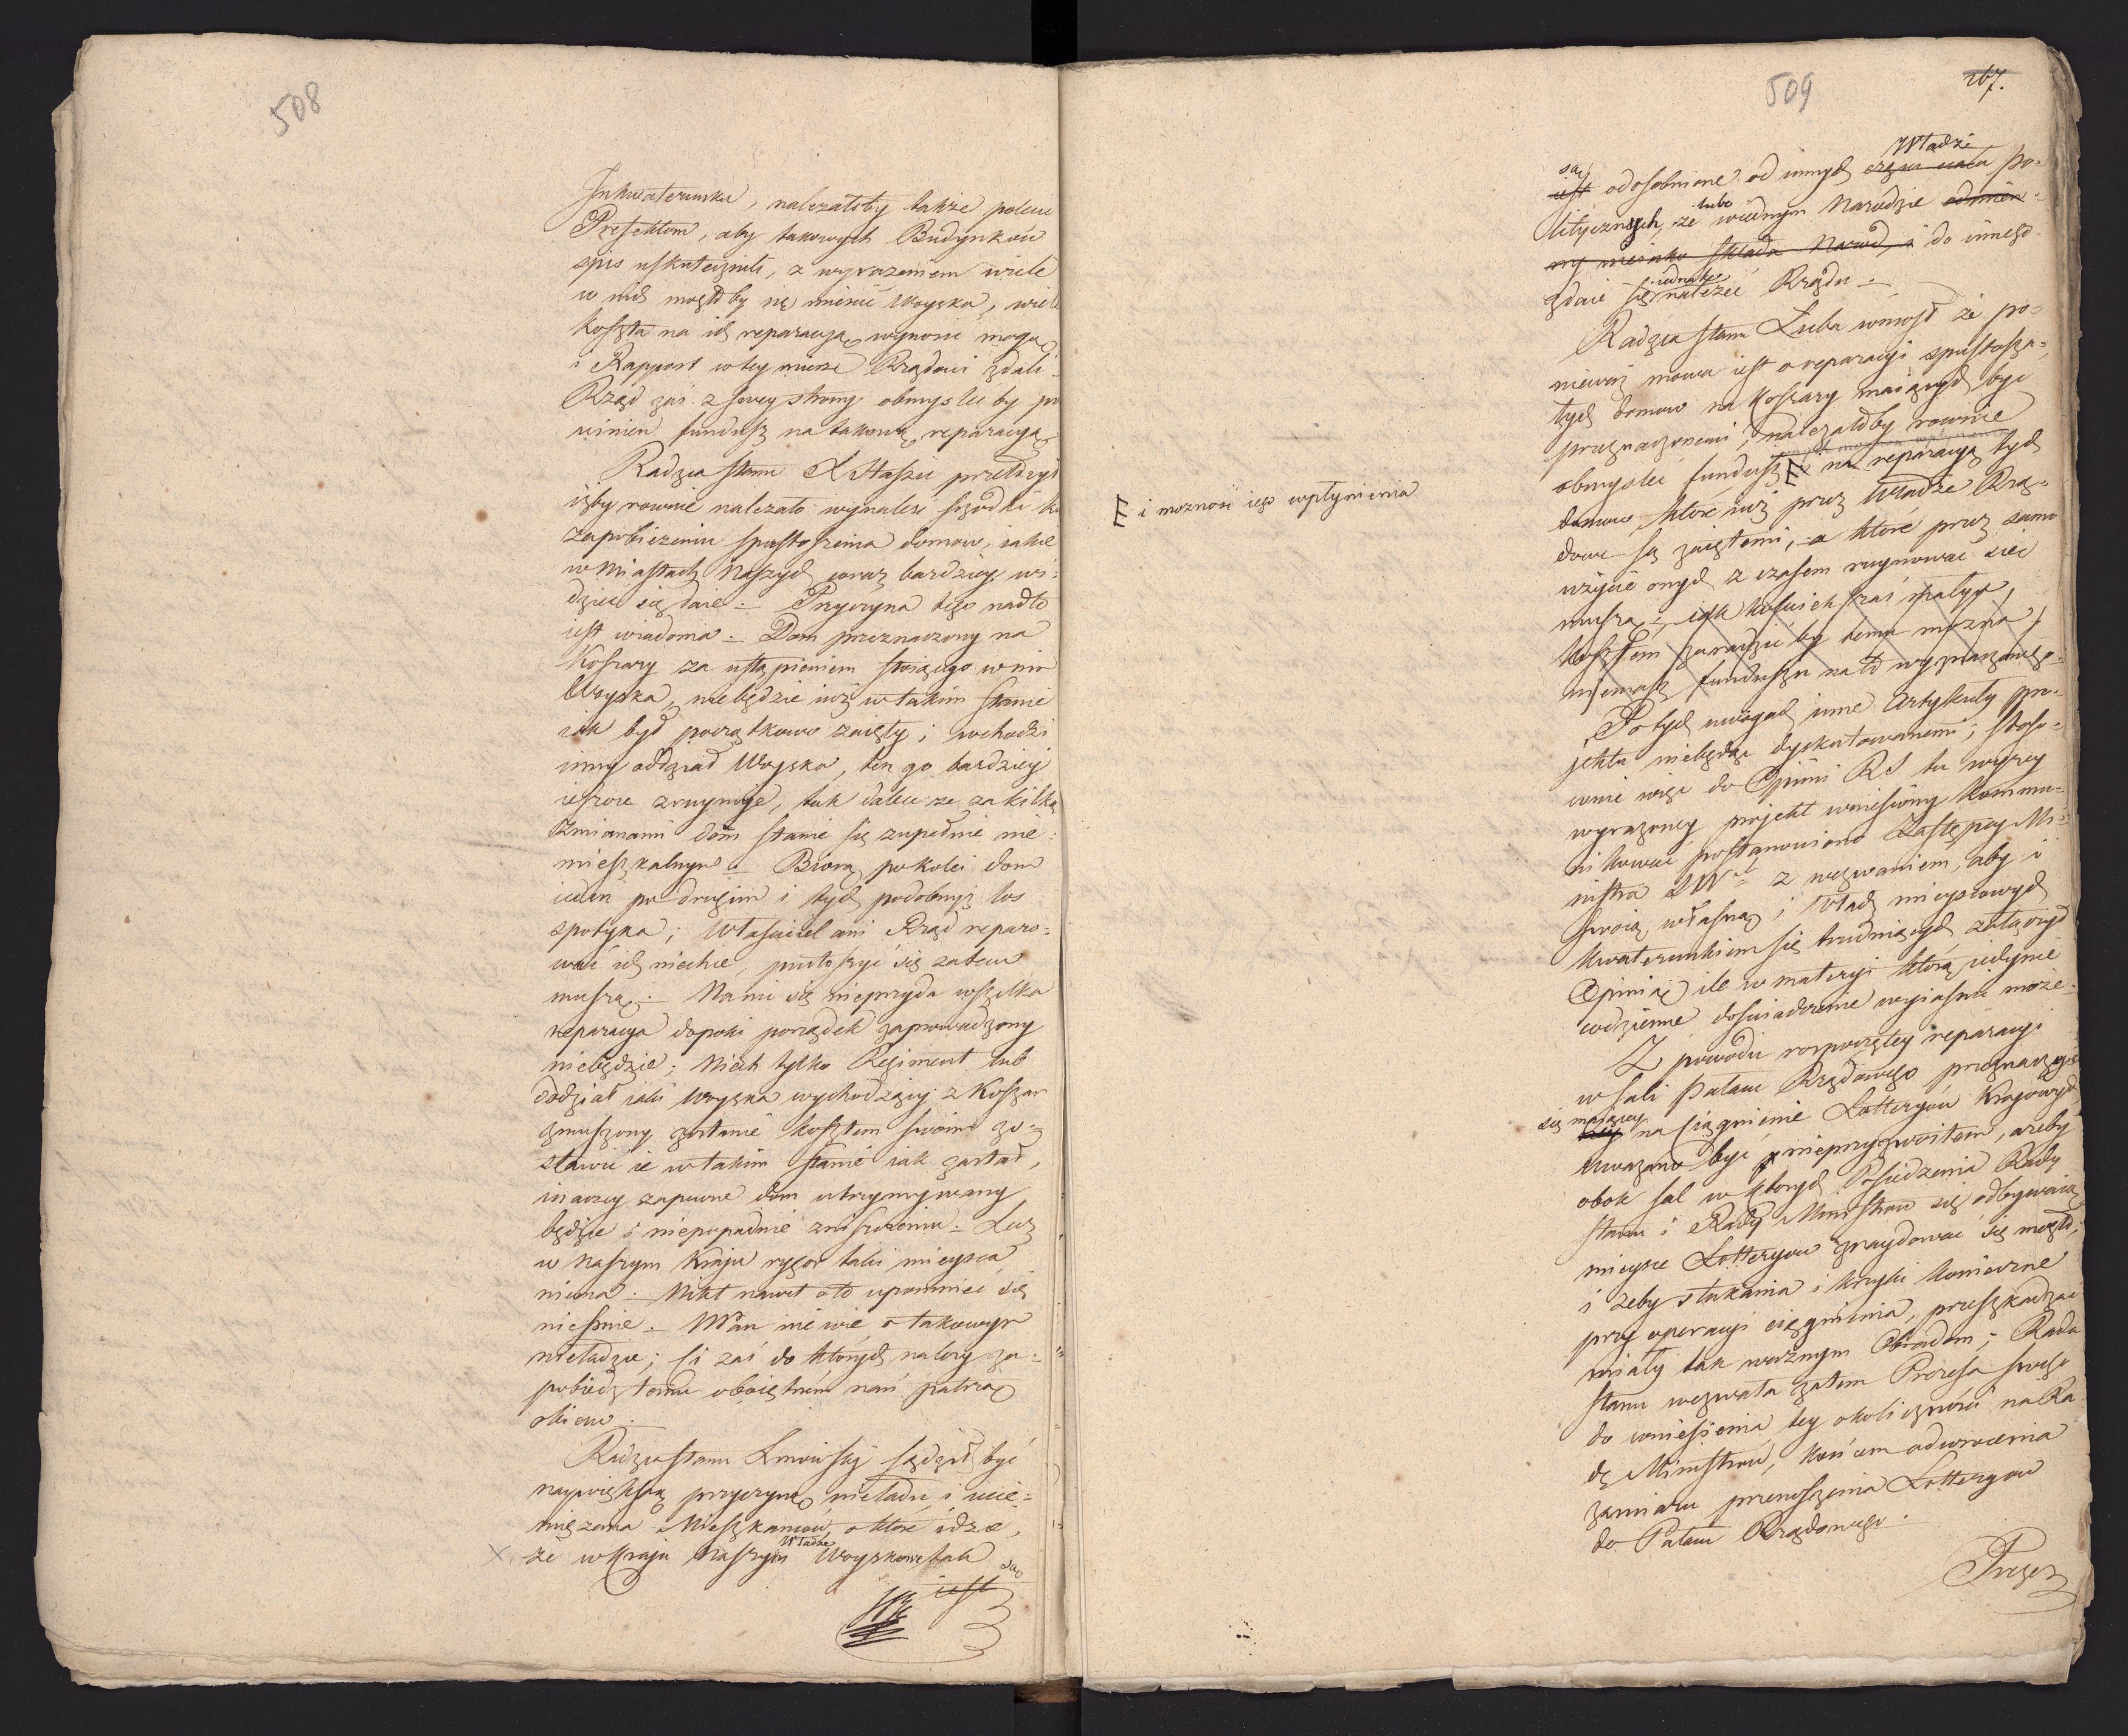 508
Inkwaterunku, należałoby także polecić
Prefektom, aby takowych Budynków
spis uskutecznili, z wyrażeniem wiele
w nich mogłoby się mieścić Woyska, wiele
koszta na ich reparacyą wynosić mogą,
i Rapport w tey mierze Rządowi zdali
Rząd zaś z swey strony obmyslić by po
winien fundusz na takową reparacyą
Radzca Stanu X Staszic przełożył
iżby rownie należało wynaleść srzodki ku
zapobieżeniu spustoszenia domow, iakie
w Miastach Naszych coraz bardziey wi=
dzieć się daie. Przyczyna tego nadto
iest wiadoma. Dom przeznaczony na
Koszary za ustąpieniem stoiącego w nim
Woyska, niebędzie iuż w takim stanie
iak był początkowo zaięty; wchodzi
inny oddział Woyska, ten go bardziey
ieszcze zruynuye, tak dalece ze za kilką
zmianami dom stanie się zupełnie nie=
mieszkalnym. Biorą po kolei dom
ieden po drugim i tych podobnyż los
spotyka; Właściciel ani Rząd reparo=
wać ich niechce, pustoszyć się zatem
muszą. Na nic się nieprzyda wszelka
reparacya dopoki porządek zaprowadzony
niebędzie; Niech tylko Regiment lub
oddział iaki Woyska wychodzący z Koszar
zmuszony zostanie kosztem swoim zo=
stawić ie w takim stanie iak zastał,
inaczey zapewne dom utrzymywany
będzie i niepopadnie zniszczeniu. Lecz
w naszym Kraju rygor taki mieysca
niema. Nikt nawet o to upomnieć się
niesmie. Pan nie wie o takowym
nieładzie; Ci zaś do których należy za=
pobiedz temu oboiętnem nań patrzą
okiem.
Radzca Stanu Linowski sądził być
naywiększą przyczyną nieładu i ucie=
miężenia Mieszkancow, o które idzie,
Władze
że w Kraju Naszym Woyskowe tak
są
iest
509
267.
Władzi
są
iest odosobnione od innych części ciała po=
lubo
litycznych, że w iednym Narodzie odmien=
ny nieiako składa Narod, i do innego
iednakże
zdaie się należeć Rządu.
Radzca Stanu Łuba wniosł że po=
nieważ mowa iest o reparacyi spustosza=
łych domow na Koszary maiących być
przeznaczonemi, należałoby rownie
obmyslić fundusz E na reparacyą tych
domow które iuż przez Władze Rzą=
dowe są zaiętemi, a które przez samo
użycie onych z czasem ruynować się
muszą; iakkolwiek zaś małym
kosztem zaradzić by temu można,
niemasz funduszu na to wyznaczonego.
E i możność iego wpłynienia
Po tych uwagach inne Artykuły pro=
jektu niebędąc dyskutowanemi; stoso=
wnie więc do Opinii RS tu wyżey
wyrażoney projekt wniesiony kommu=
nikować postanowiono Zastępcy Mi=
nistra SWn z wezwaniem, aby i
swoią własną i Władz mieyscowych
kwaterunkiem się trudniących załączył
Opinię ile w materyi którą iedynie
codzienne doswiadczenie wyiasnić może.
Z powodu rozpoczętey reparacyi
w sali Pałacu Rządowego przeznaczyć
się maiącey na Ciągnienie Lotteryow Kraiowych
uważano być nieprzyzwoitem, ażeby
obok sal w których Posiedzenia Rady
Stanu i Rady Ministrow się odbywaią
mieysce Lotteryow znaydować się mogło;
i żeby stukania i krzyki konieczne
przy operacyi ciągnienia, przeszkadzać
miały tak ważnym Obradom; Rada
Stanu wezwała zatem Prezesa swego
do wniesienia tey okoliczności na Ra=
dę Ministrow, końcem odwrocenia
zamiaru przenoszenia Lotteryow
do Pałacu Rządowego.
Prezes